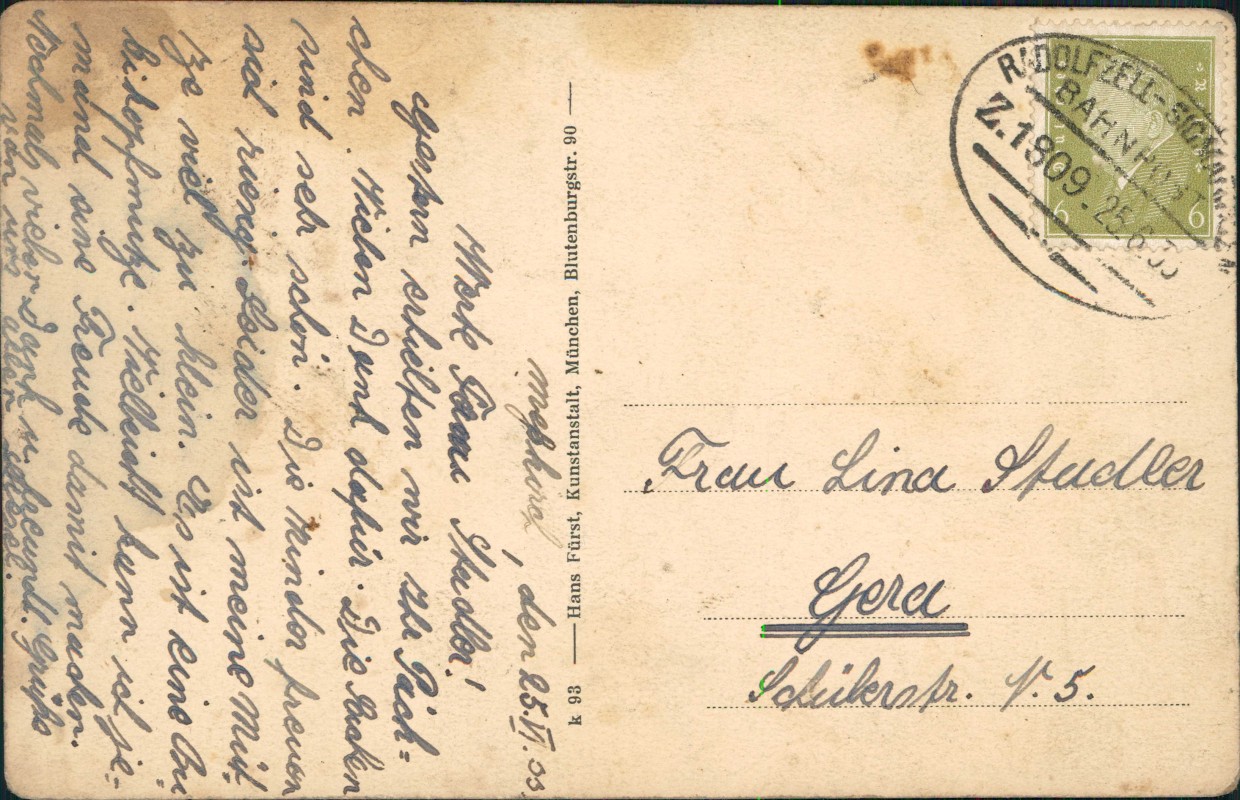 Meßkirch, den 25. VI. 33.
Werte Frau Stadler!
Gestern erhielten wir Ihr Päck=
chen. Vielen Dank dafür. Die Sachen
sind sehr schön. Die Kinder freuen
sich riesig. Leider ist meine Müt-
ze viel zu klein. Es ist eine Bu-
bikopfmütze. Vielleicht kann ich je-
mand eine Freude damit machen.
Nochmals vielen Dank u. freundl. Grüße
von uns allen
k 93 — Hans Fürst, Kunstanstalt, München, Blutenburgstr. 90 —
RADOLFZELL-SIGMARINGEN
BAHNPOST
Z.1809 25.6.33
6 6
Frau Lina Stadler
Gera
Schülerstr. N. 5.